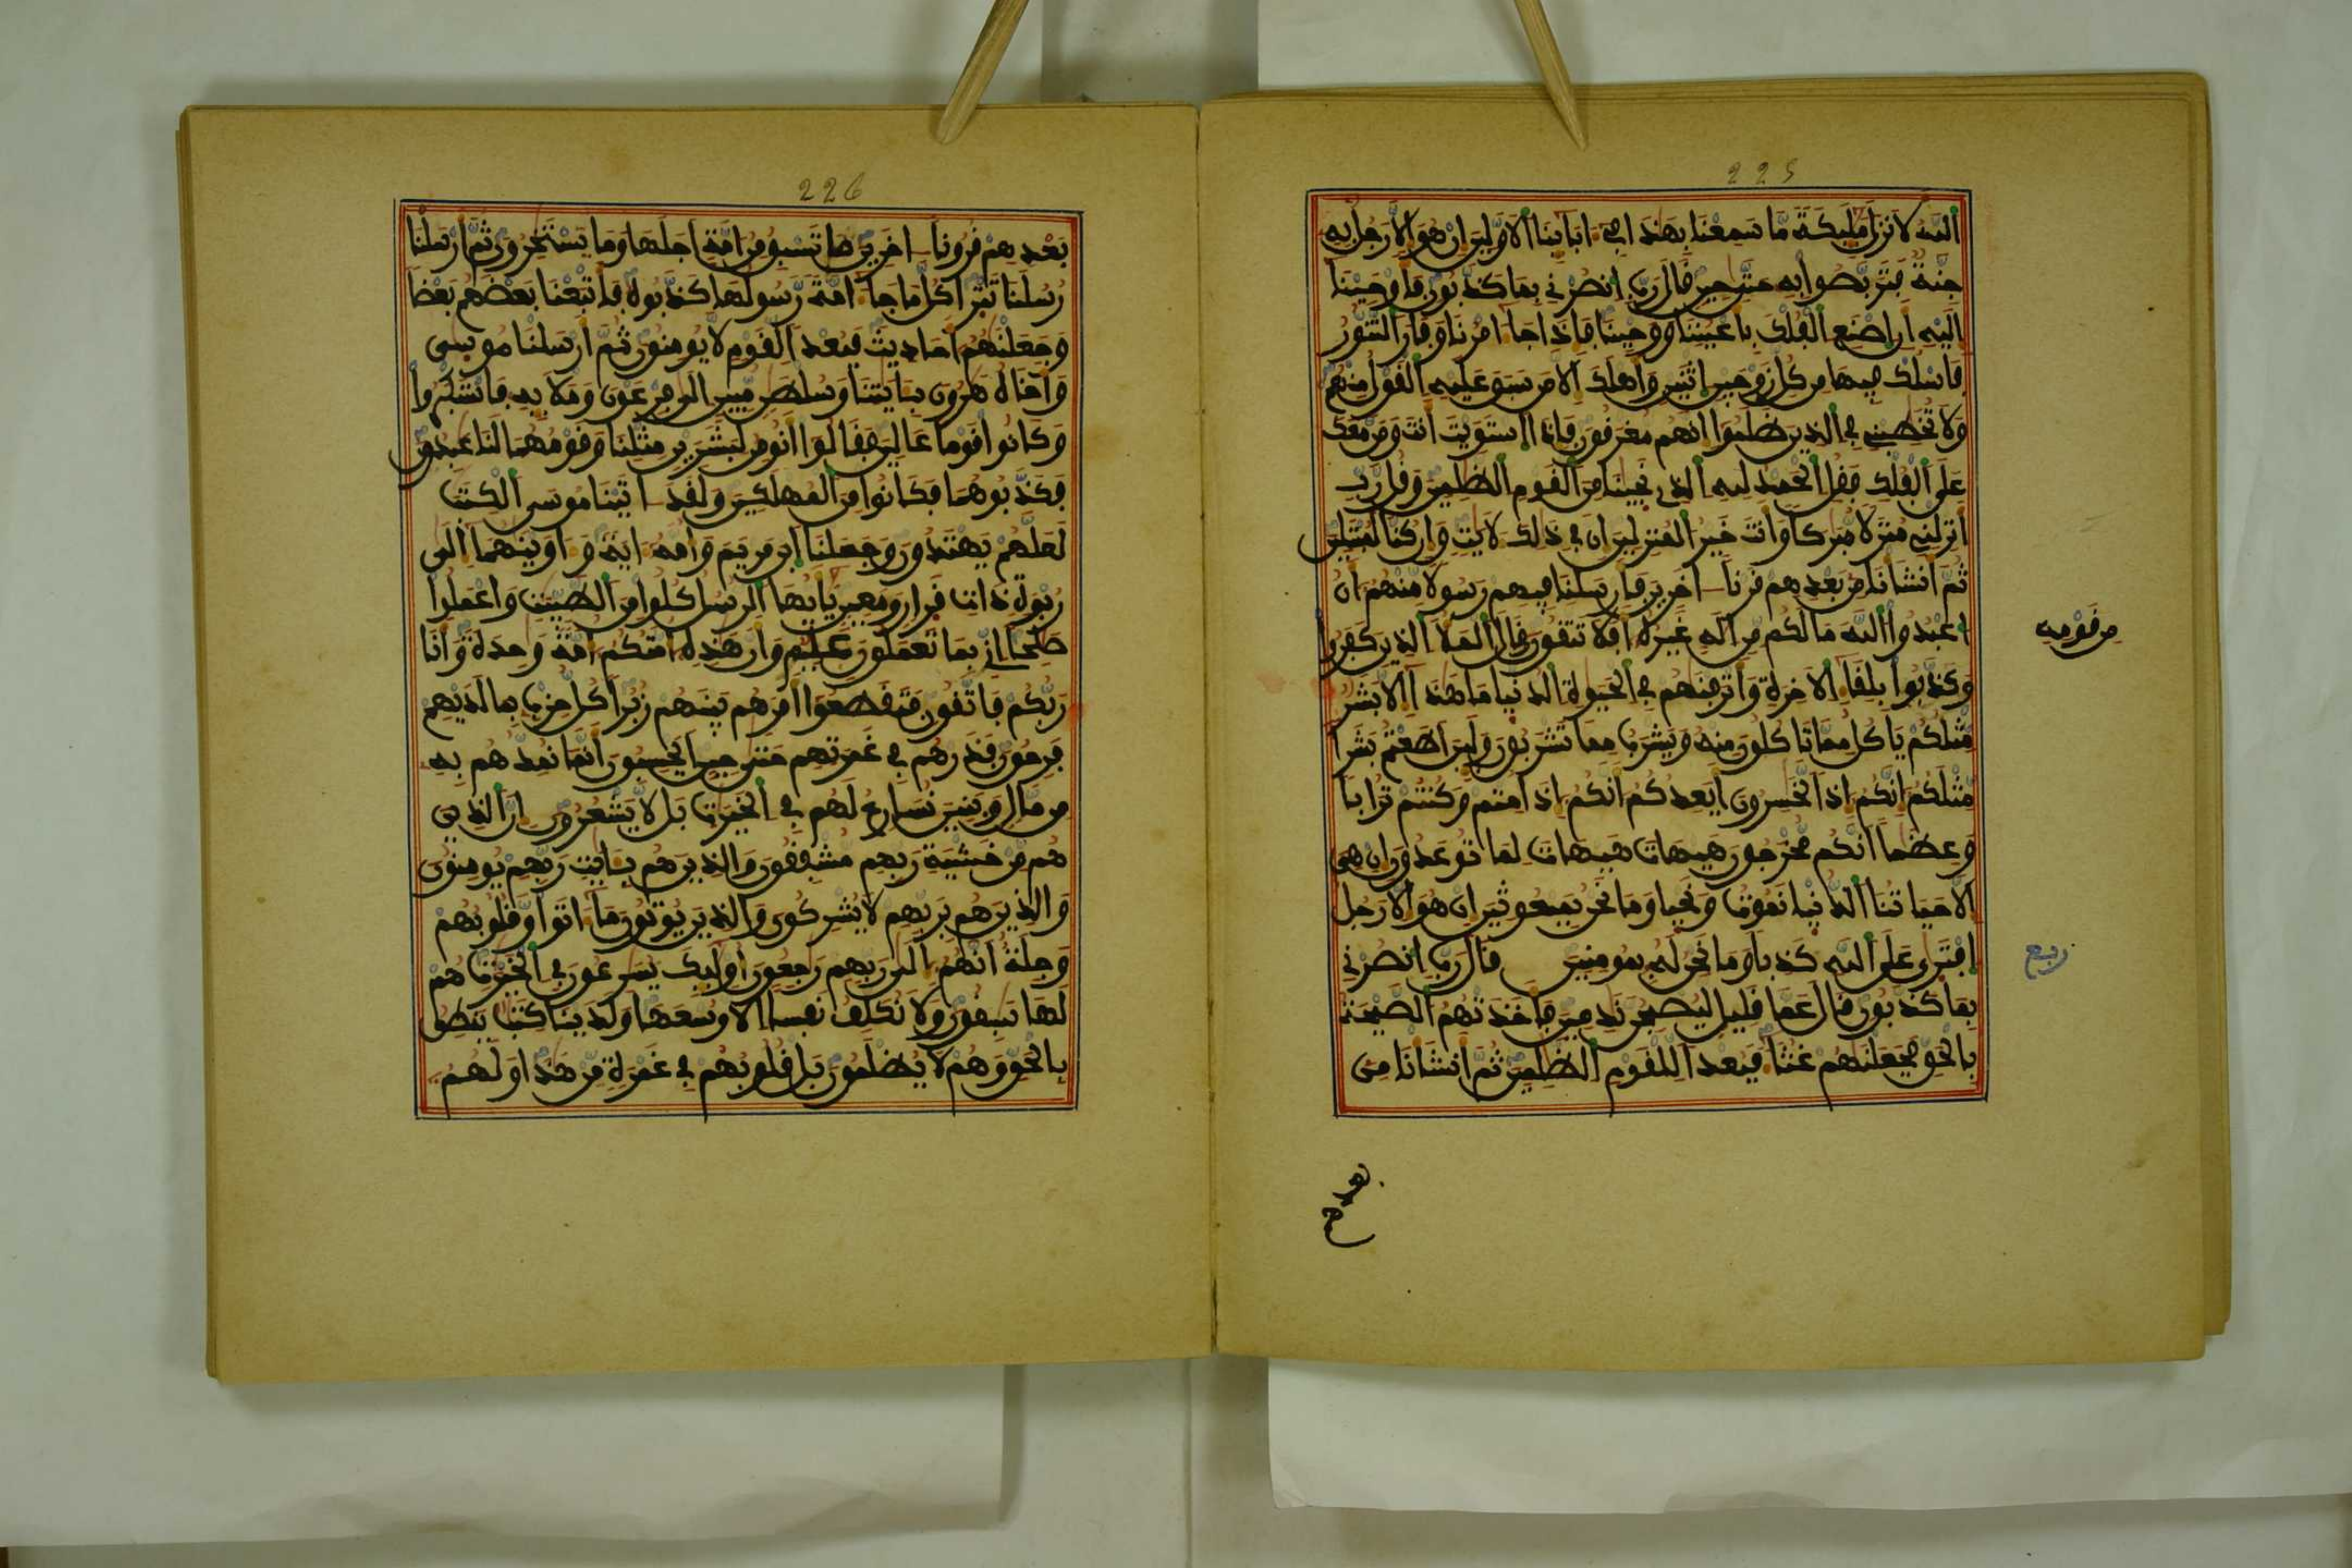 225
الله لانزل مليكة ما سمعنا بهذا في ءابائنا الاولين ان هو الا رجل به
جنة فتربصوا به حتى حين قال رب انصرني بما كذبون فاوحينا
اليه ان اصنع الفلك باعيننا ووحينا فاذا جا امرنا وفار التنور
فاسلك فيها من كل زوجين اثنين واهلك الا من سبق عليه القول منهم
ولا تخطبني في الذين ظلموا انهم مغرقون فاذا استويت انت ومن معك
على الفلك فقل الحمد لله الذي نجينا من القوم الظلمين وقل رب
انزلني منزلا مبركا وانت خير المنزلين ان في ذلك لايت وان كنا لمبتلين
ثم انشانا من بعدهم قرنا اخرين فارسلنا فيهم رسولا منهم ان
اعبدوا الله ما لكم من اله غيره افلا تتقون وقال الملا الذين كفروا
من قومه
وكذبوا بلقا الاخرة واترفنهم في الحيوة الدنيا ما هذا الا بشر
مثلكم ياكل مما تاكلون منه ويشرب مما تشربون ولين اطعتم بشرا
مثلكم انكم اذا لخسرون ايعدكم انكم اذا متم وكنتم ترابا
وعظما انكم مخرجون هيهات هيهات لما توعدون ان هي
الا حياتنا الدنيا نموت ونحيا وما نحن بمبعوثين ان هو الا رجل
افترى على الله كذبا وما نحن له بمومنين قال رب انصرني
ربع
بما كذبون قال عما قليل ليصبحن ندمين فاخذتهم الصيحة
بالحق فجعلنهم غثا فبعدا للقوم الظلمين ثم انشانا من
226
بعدهم قرونا اخرين ما تسبق من امة اجلها وما يستخرون ثم ارسلنا
رسلنا تترا كل ما جا امة رسولها كذبوه فاتبعنا بعضهم بعضا
وجعلنهم احاديث فبعدا لقوم لا يومنون ثم ارسلنا موسى
واخاه هرون بايتنا وسلطن مبين الى فرعون وملايه فاستكبروا
وكانوا قوما عالين فقالوا انومن لبشرين مثلنا وقومهما لنا عبدون
فكذبوهما فكانوا من المهلكين ولقد اتينا موسى الكتب
لعلهم يهتدون وجعلنا ابن مريم وامه اية واوينهما الى
ربوة ذات قرار ومعين يايها الرسل كلوا من الطيبت واعملوا
صلحا اني بما تعملون عليم وان هذه امتكم امة وحدة وانا
ربكم فاتقون فتقطعوا امرهم بينهم زبرا كل حزب بما لديهم
فرحون فذرهم في غمرتهم حتى حين ايحسبون انما نمدهم به
من مال وبنين نسارع لهم في الخيرت بل لا يشعرون ان الذين
هم من خشية ربهم مشفقون والذين هم بايت ربهم يومنون
والذين هم بربهم لا يشركون والذين يوتون ما اتوا وقلوبهم
وجلة انهم الى ربهم رجعون اوليك يسرعون في الخيرت وهم
لها سبقون ولا نكلف نفسا الا وسعها ولدينا كتب ينطق
بالحق وهم لا يظلمون بل قلوبهم في غمرة من هذا ولهم